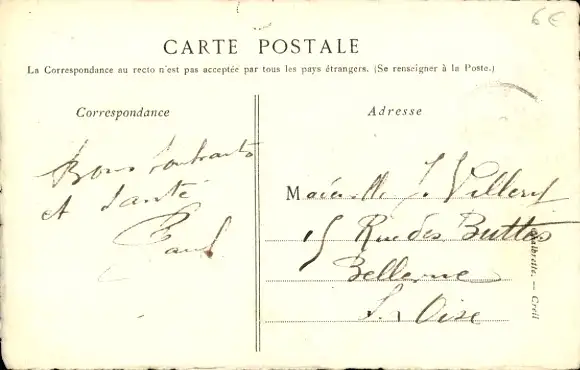 6€
CARTE POSTALE
La Correspondance au recto n'est pas acceptée par tous les pays étrangers. (Se renseigner à la Poste.)
Correspondance
Adresse
Bons Souhaits
et Santé
Paul
M J. Villery
15 Rue des Buttes
Bellerive
S. Oise
— Creil